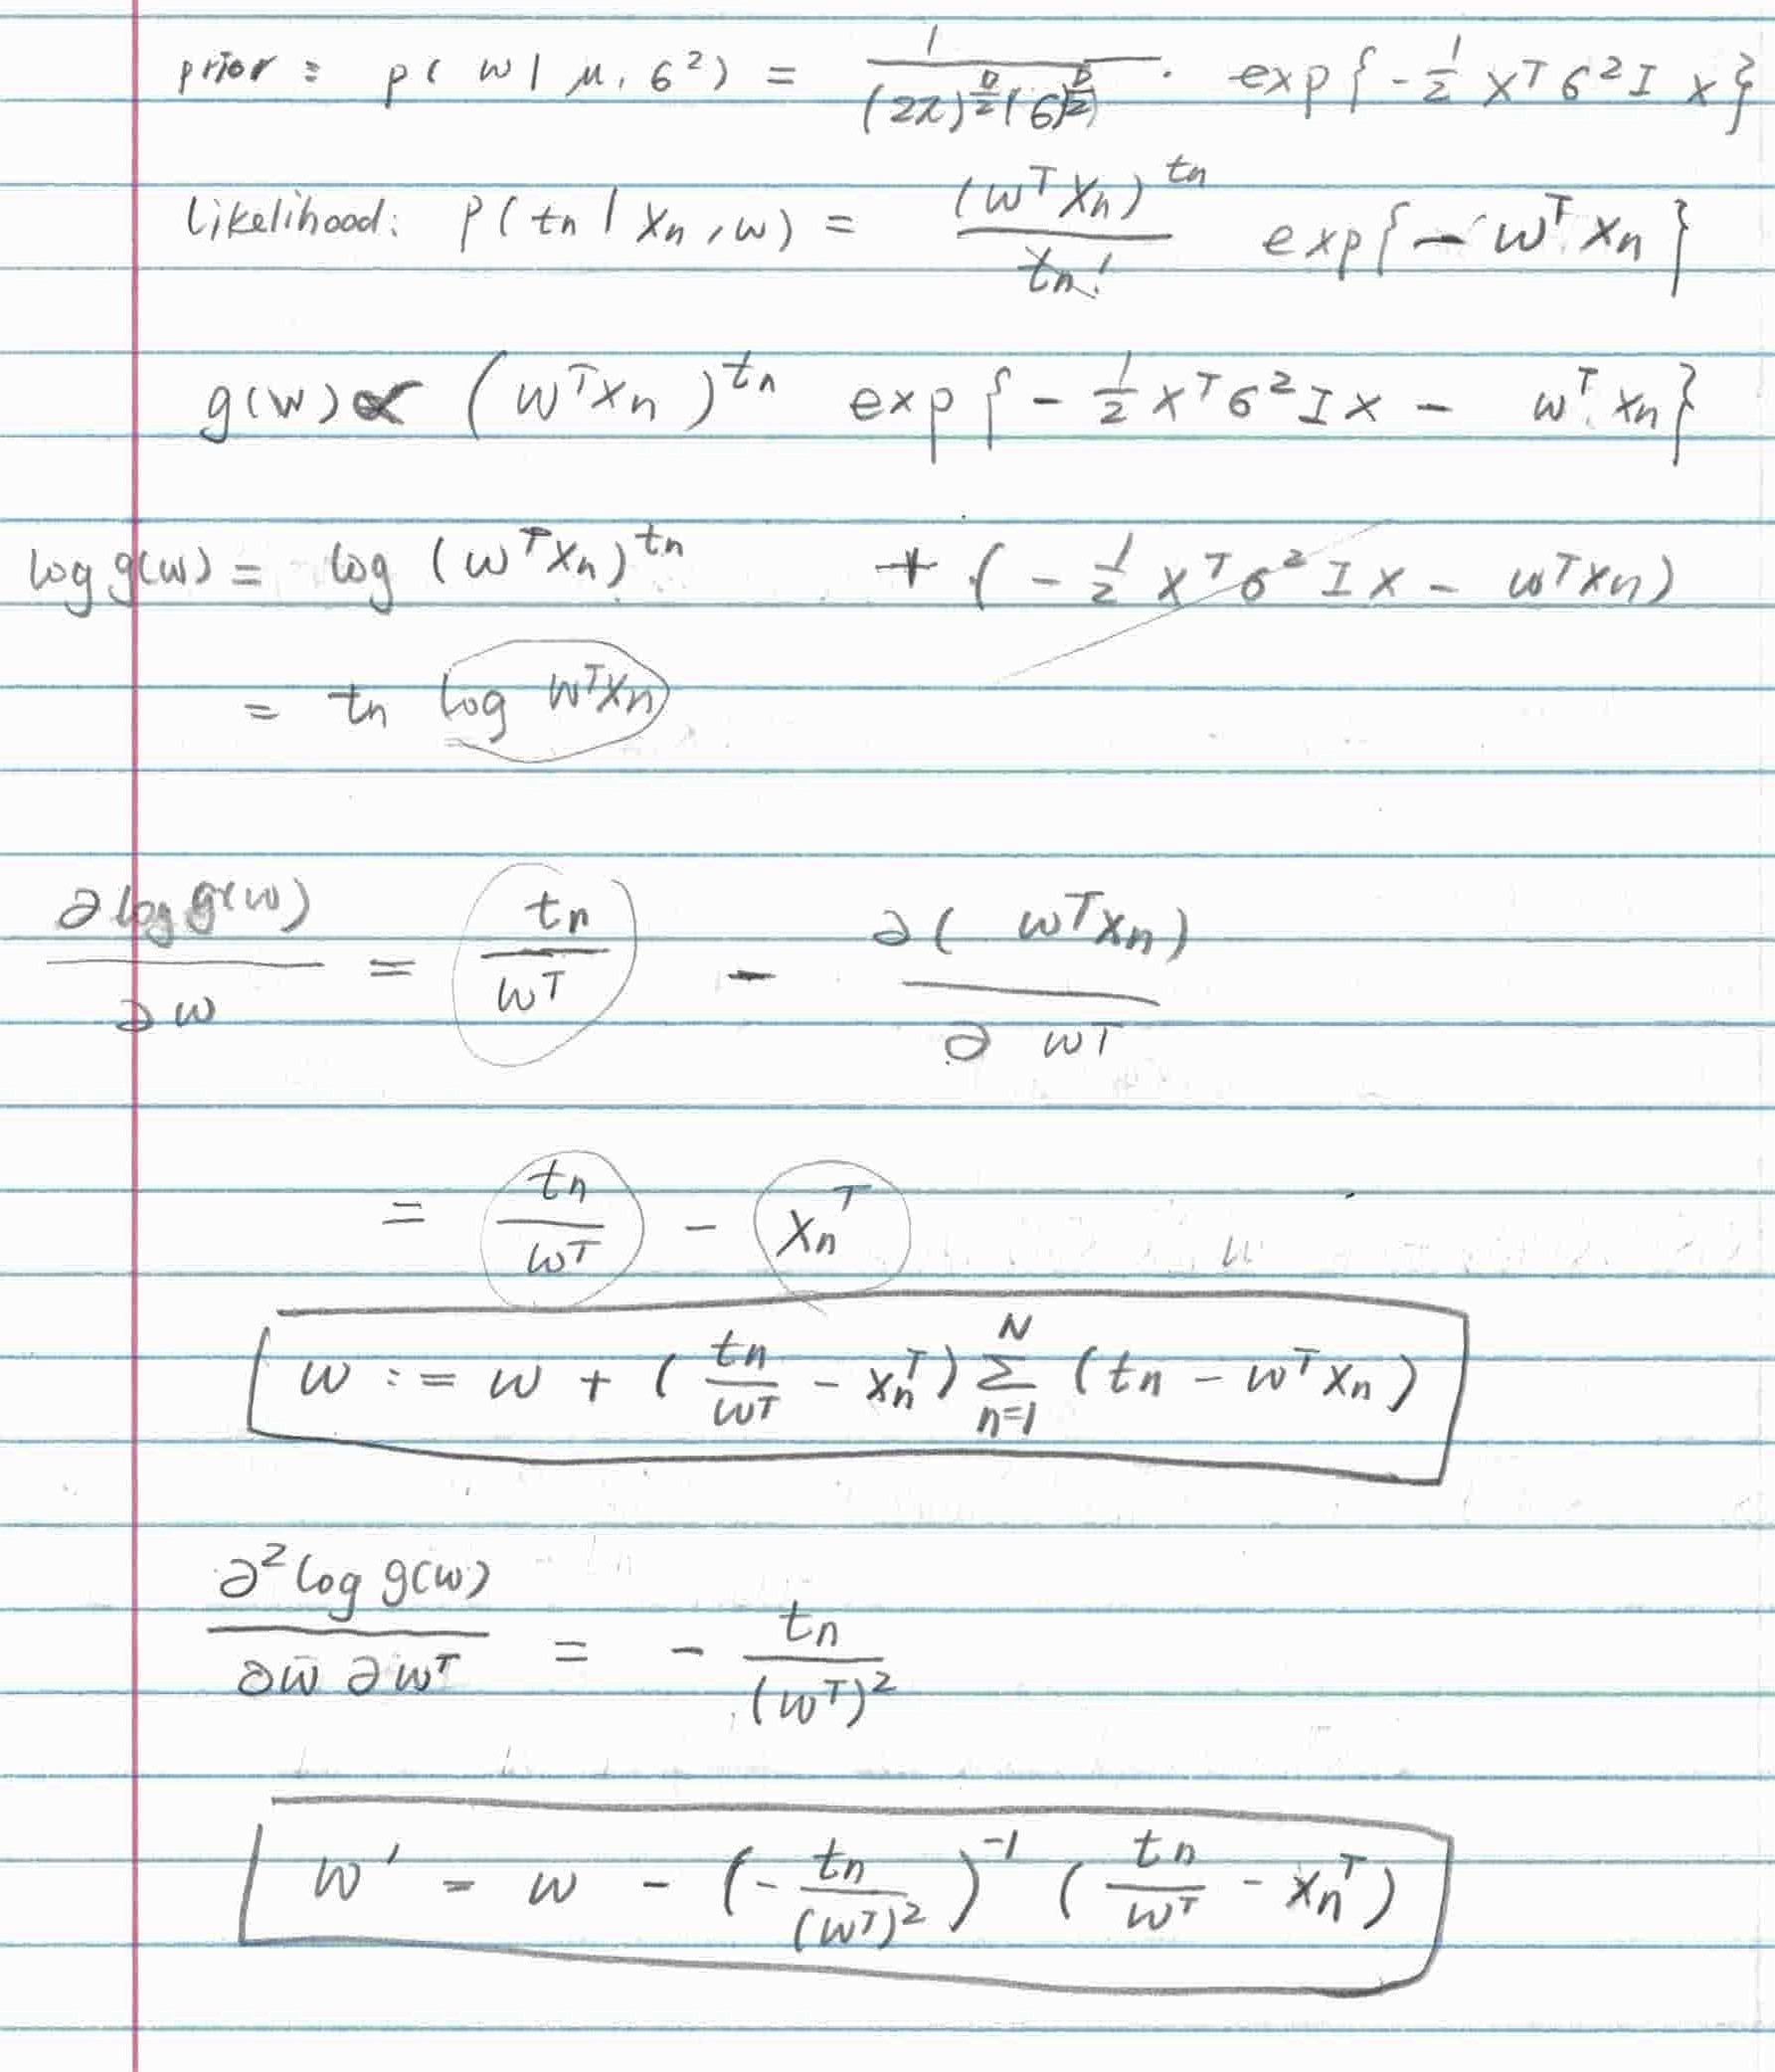 prior : p( w | μ, 6²) = 1 / (2π)^{D/2} (6)^{D/2} · exp{ - 1/2 x^T 6² I x}
Likelihood: p( tn | xn , w) = (w^T xn)^{tn} / tn! exp{ - w^T xn }
g(w) ∝ (w^T xn)^{tn} exp{ - 1/2 x^T 6² I x - w^T xn}
log g(w) = log (w^T xn)^{tn} + ( - 1/2 x^T 6² I x - w^T xn)
= tn log w^T xn
∂ log g(w) / ∂ w = tn / w^T - ∂ ( w^T xn) / ∂ w^T
= tn / w^T - xn^T
w := w + ( tn / w^T - xn^T ) Σ_{n=1}^{N} (tn - w^T xn )
∂² log g(w) / ∂w ∂w^T = - tn / (w^T)²
w' = w - (- tn / (w^T)² )^{-1} ( tn / w^T - xn^T )